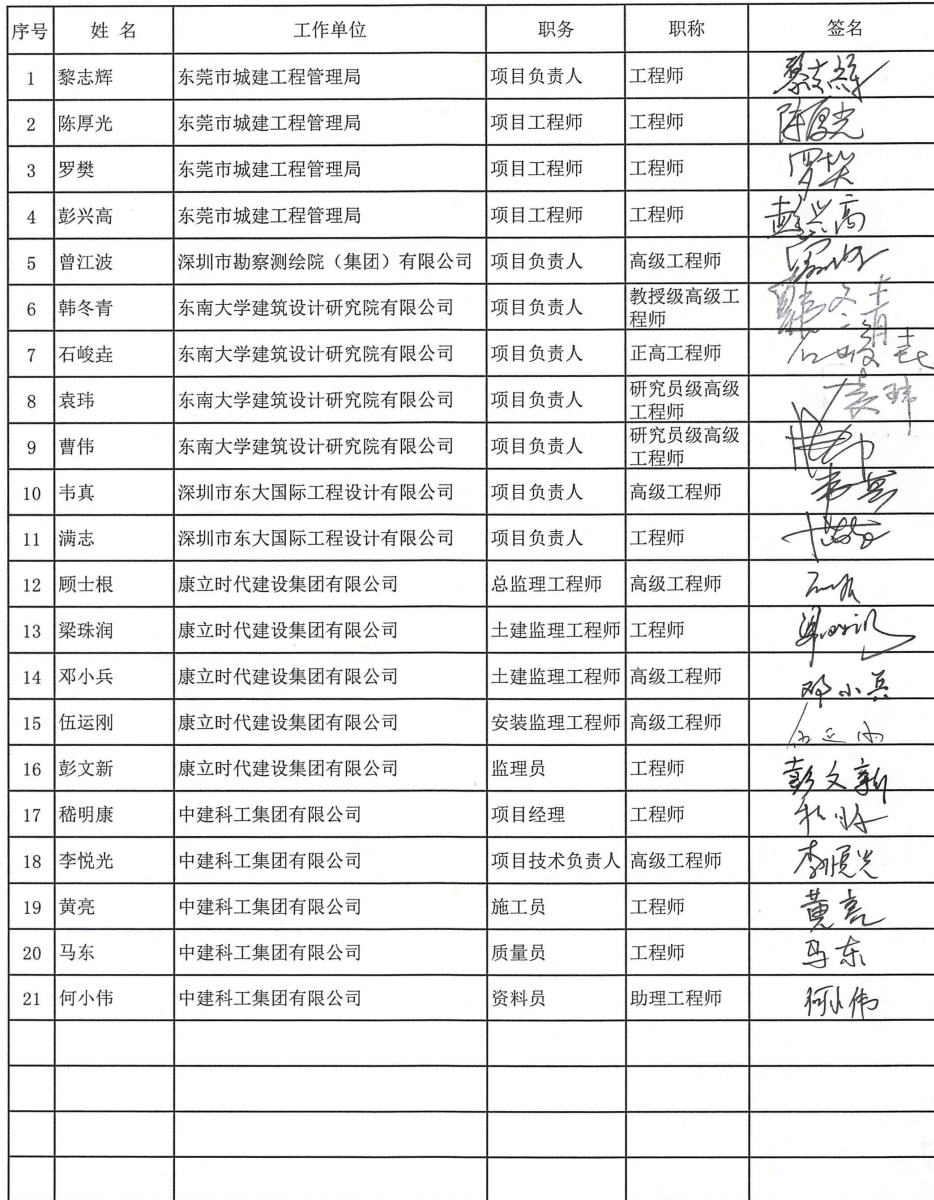 序号 姓 名 工作单位 职务 职称 签名
1 黎志辉 东莞市城建工程管理局 项目负责人 工程师 黎志辉
2 陈厚光 东莞市城建工程管理局 项目工程师 工程师 陈厚光
3 罗樊 东莞市城建工程管理局 项目工程师 工程师 罗樊
4 彭兴高 东莞市城建工程管理局 项目工程师 工程师 彭兴高
5 曾江波 深圳市勘察测绘院（集团）有限公司 项目负责人 高级工程师
6 韩冬青 东南大学建筑设计研究院有限公司 项目负责人 教授级高级工程师 韩冬青
7 石峻垚 东南大学建筑设计研究院有限公司 项目负责人 正高工程师 石峻垚
8 袁玮 东南大学建筑设计研究院有限公司 项目负责人 研究员级高级工程师 袁玮
9 曹伟 东南大学建筑设计研究院有限公司 项目负责人 研究员级高级工程师
10 韦真 深圳市东大国际工程设计有限公司 项目负责人 高级工程师 韦真
11 满志 深圳市东大国际工程设计有限公司 项目负责人 工程师
12 顾士根 康立时代建设集团有限公司 总监理工程师 高级工程师
13 梁珠润 康立时代建设集团有限公司 土建监理工程师 工程师
14 邓小兵 康立时代建设集团有限公司 土建监理工程师 高级工程师 邓小兵
15 伍运刚 康立时代建设集团有限公司 安装监理工程师 高级工程师 伍运刚
16 彭文新 康立时代建设集团有限公司 监理员 工程师 彭文新
17 嵇明康 中建科工集团有限公司 项目经理 工程师
18 李悦光 中建科工集团有限公司 项目技术负责人 高级工程师 李悦光
19 黄亮 中建科工集团有限公司 施工员 工程师 黄亮
20 马东 中建科工集团有限公司 质量员 工程师 马东
21 何小伟 中建科工集团有限公司 资料员 助理工程师 何小伟